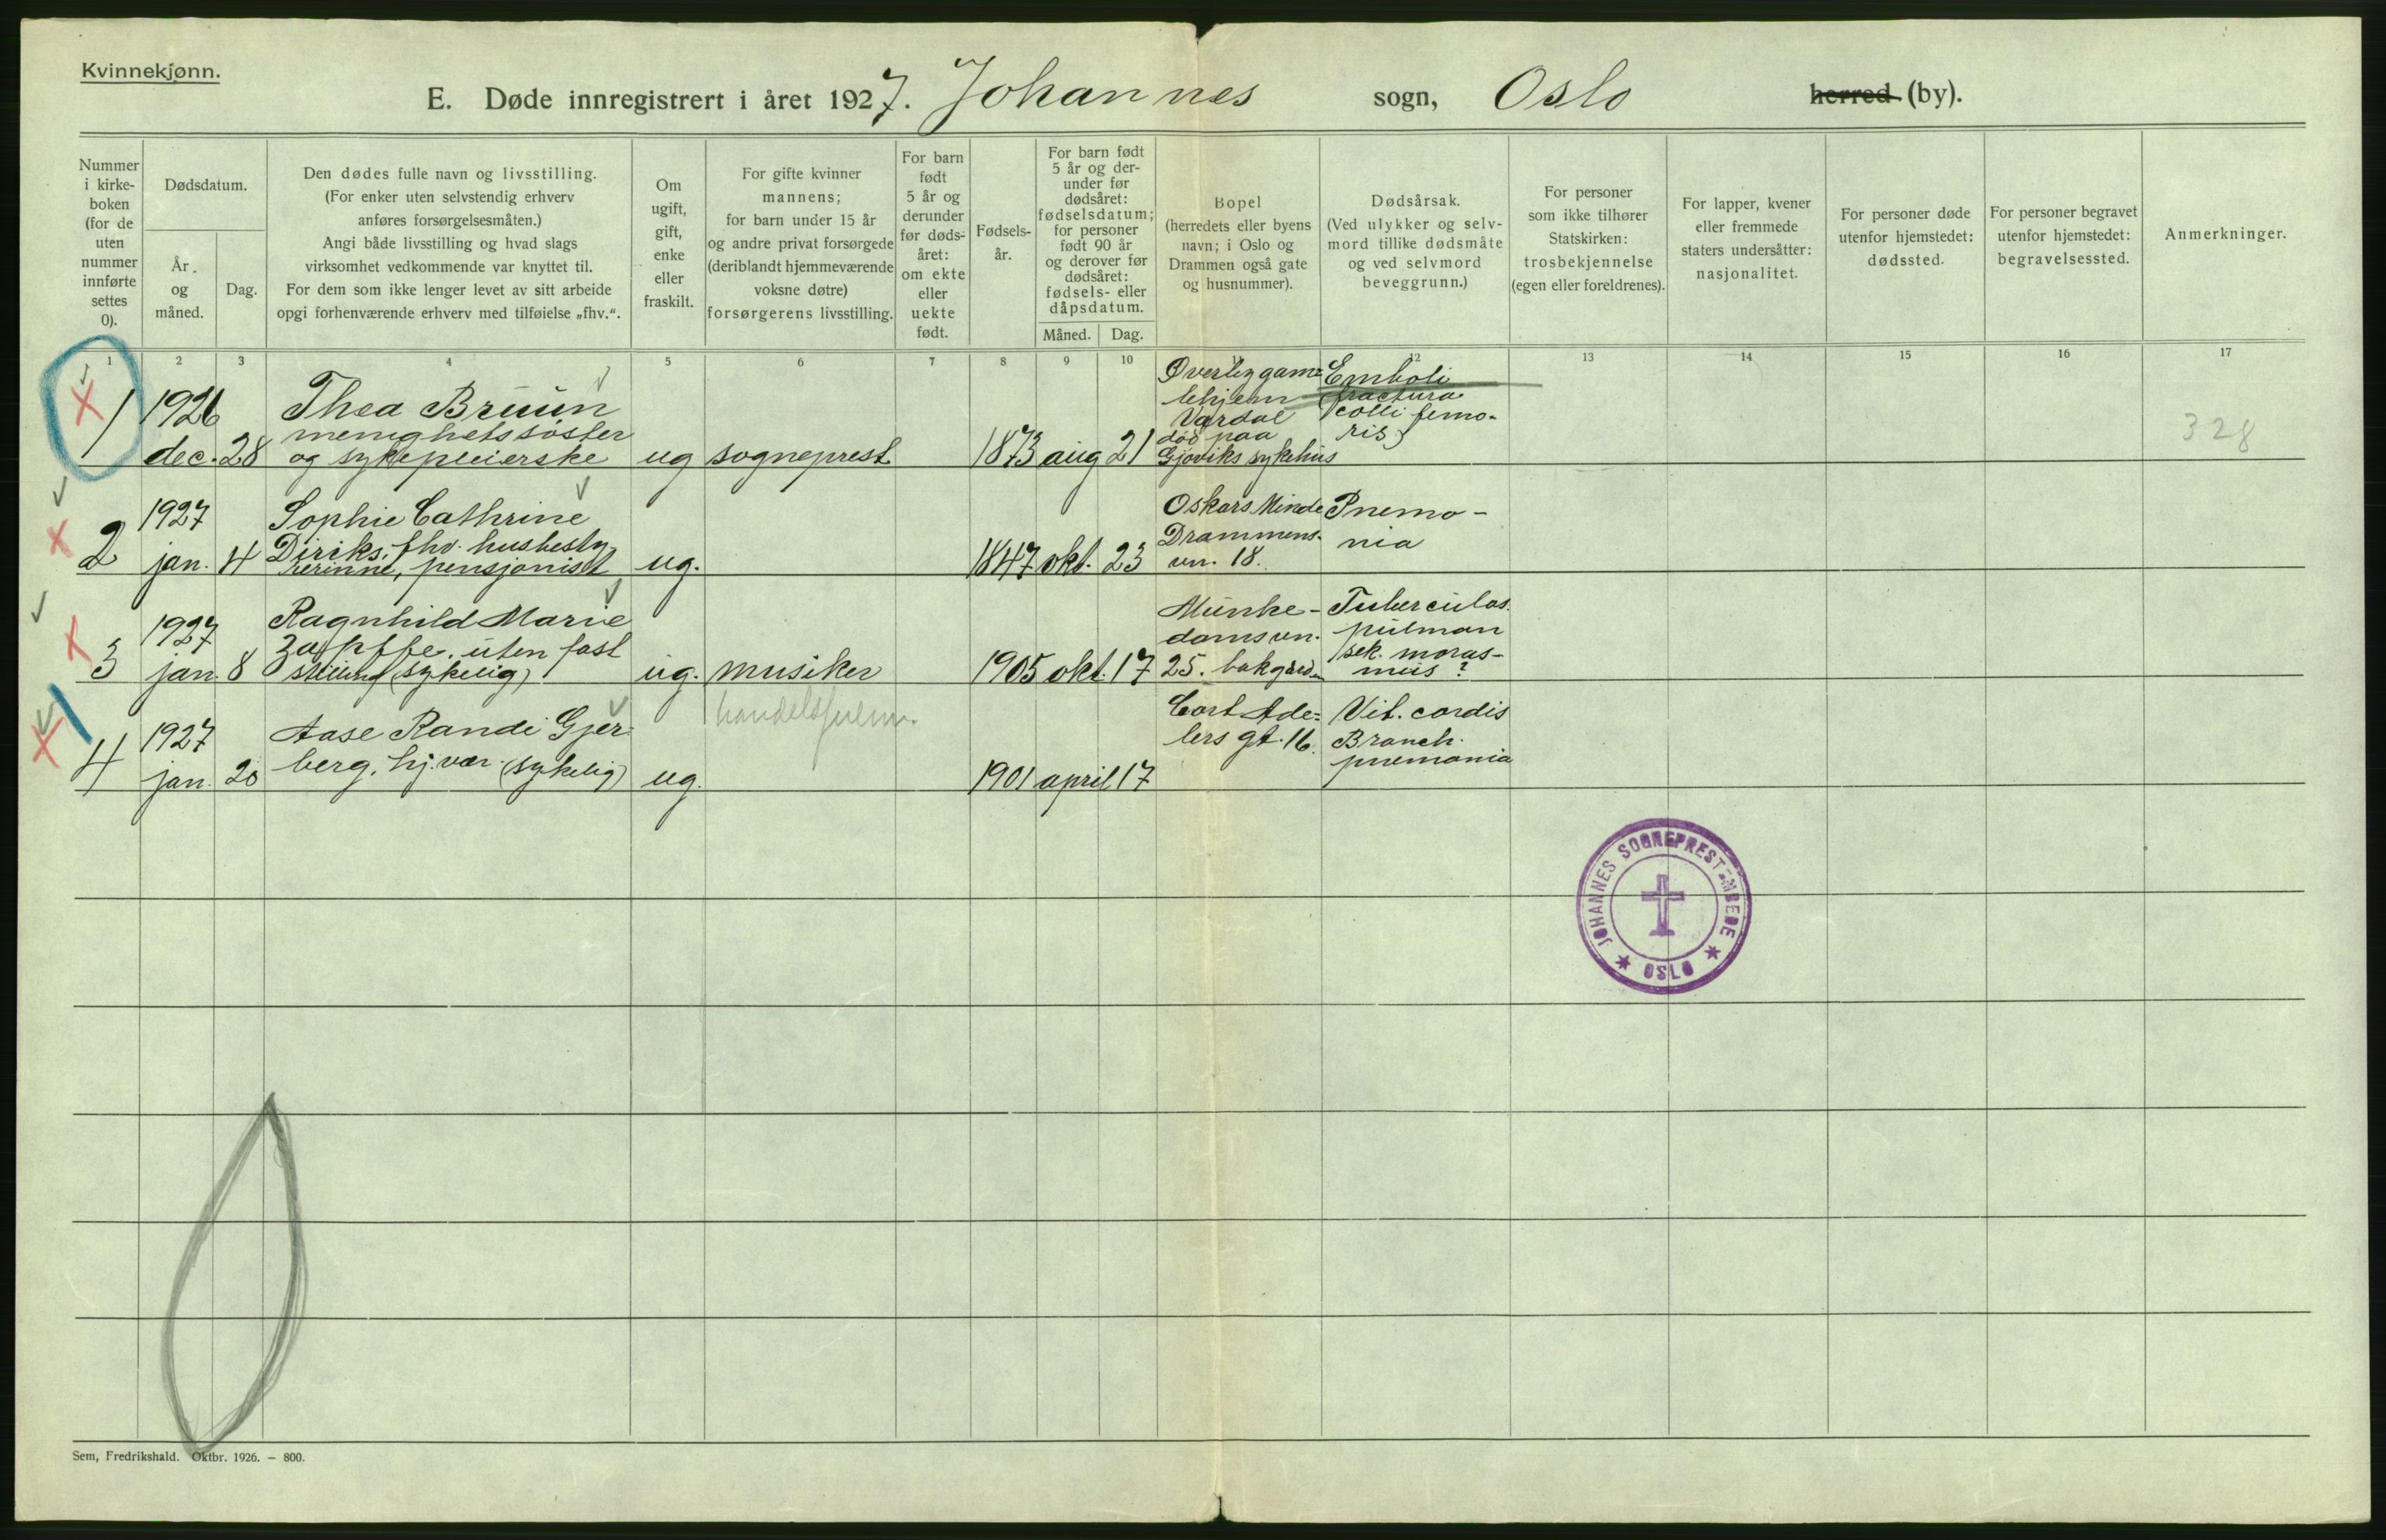 Kvinnekjønn.
E. Døde innregistrert i året 1927. Johannes sogn, Oslo herred (by).
Nummer
i kirke-
boken
(for de
uten
nummer
innførte
settes
0).
Dødsdatum.
År
og
måned.
Dag.
Den dødes fulle navn og livsstilling.
(For enker uten selvstendig erhverv
anføres forsørgelsesmåten.)
Angi både livsstilling og hvad slags
virksomhet vedkommende var knyttet til.
For dem som ikke lenger levet av sitt arbeide
opgi forhenværende erhverv med tilføielse „fhv.“.
Om
ugift,
gift,
enke
eller
fraskilt.
For gifte kvinner
mannens;
for barn under 15 år
og andre privat forsørgede
(deriblandt hjemmeværende
voksne døtre)
forsørgerens livsstilling.
For barn
født
5 år og
derunder
før døds-
året:
om ekte
eller
uekte
født.
Fødsels-
år.
For barn født
5 år og der-
under før
dødsåret:
fødselsdatum;
for personer
født 90 år
og derover før
dødsåret:
fødsels- eller
dåpsdatum.
Måned.
Dag.
Bopel
(herredets eller byens
navn; i Oslo og
Drammen også gate
og husnummer).
Dødsårsak.
(Ved ulykker og selv-
mord tillike dødsmåte
og ved selvmord
beveggrunn.)
For personer
som ikke tilhører
Statskirken:
trosbekjennelse
(egen eller foreldrenes).
For lapper, kvener
eller fremmede
staters undersåtter:
nasjonalitet.
For personer døde
utenfor hjemstedet:
dødssted.
For personer begravet
utenfor hjemstedet:
begravelsessted.
Anmerkninger.
1 2 3 4 5 6 7 8 9 10 11 12 13 14 15 16 17
1
1926
dec. 28
Thea Bruun
menighetssøster
og sykepleierske
ug
sogneprest
1873 aug 21
Øverby gam=
lehjem
Vardal
død paa
Gjøviks sykehus
Emboli
(fractura
colli femo-
ris)
328
2
1927
jan. 4
Sophie Cathrine
Diriks, fhv. husbesty
rerinne, pensjonist
ug.
1847 okt. 23
Oskars Minde
Drammens-
vn. 18.
Pnemo-
nia
3
1927
jan. 8
Ragnhild Marie
Zapffe, uten fast
stilling (sykelig)
ug.
musiker
1905 okt. 17
Munke-
damsvn.
25. bakgård
Tuberculos.
pulmon
sek. moras-
mus ?
4
1927
jan. 20
Aase Randi Gjer-
berg, hj. vær. (sykelig)
ug.
1901 april 17
Cort Ade=
lers gt. 16.
Vit. cordis
Bronch.
pnemonia
JOHANNES SOGNEPREST-EMBEDE
OSLO
Sem, Fredrikshald. Oktbr. 1926. — 800.